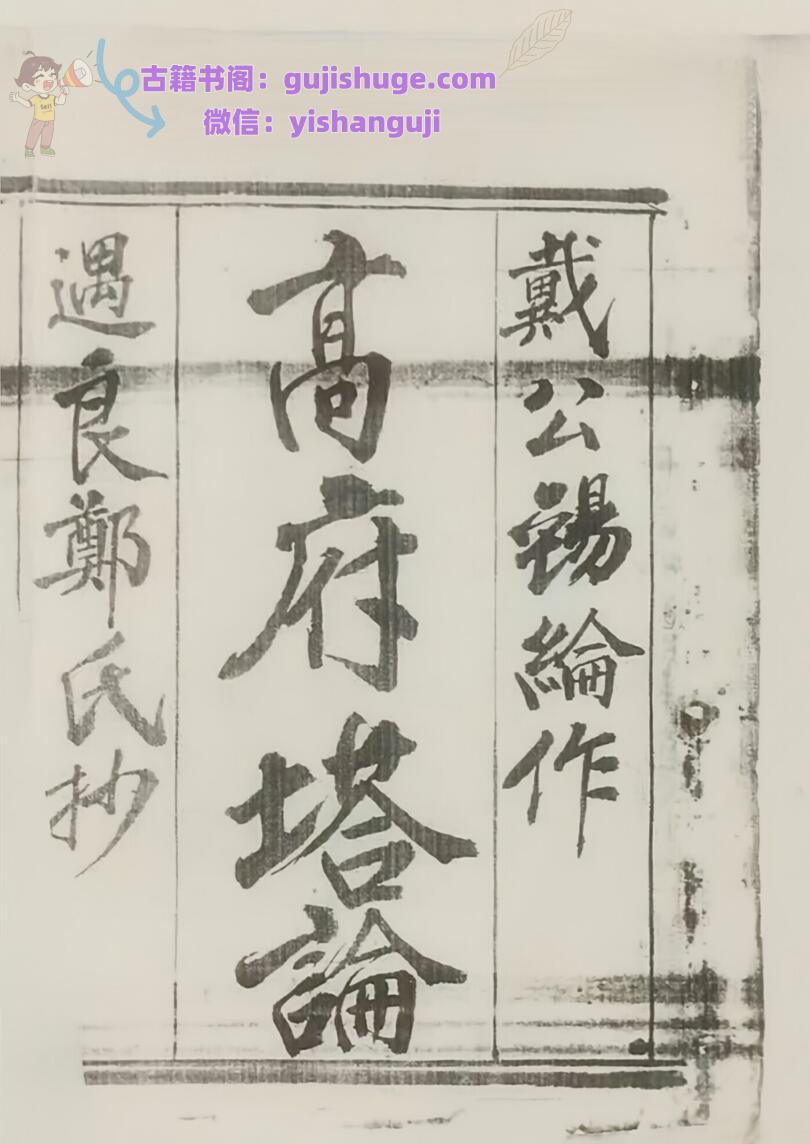 古籍书阁：gujishuge.com
微信：yishanguji
戴公錫綸作
高府塔論
遇良鄭氏抄